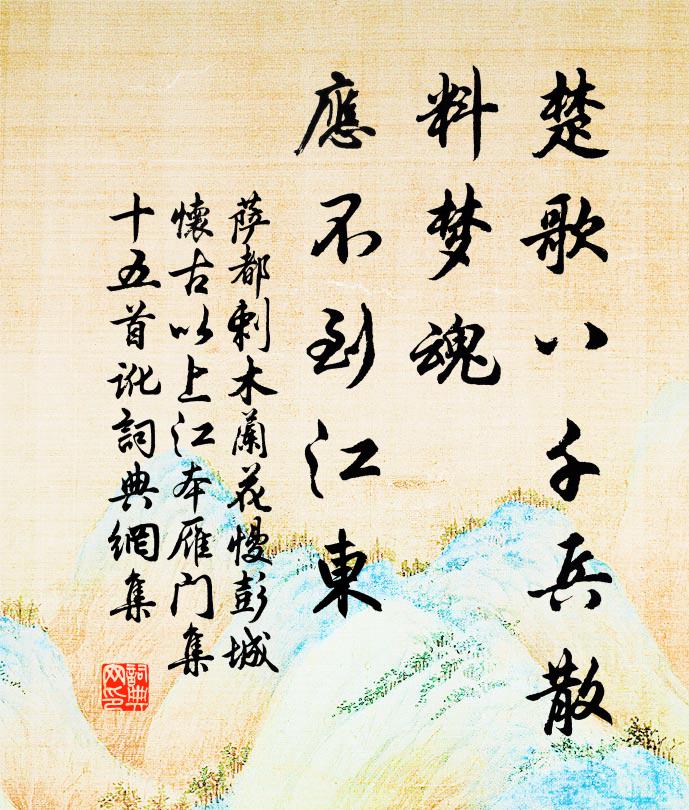 楚歌八千兵散
料梦魂
應不到江東
萨都剌木蘭花慢彭城
懷古以上江本雁门集
十五首訛詞典網集
詞典網印